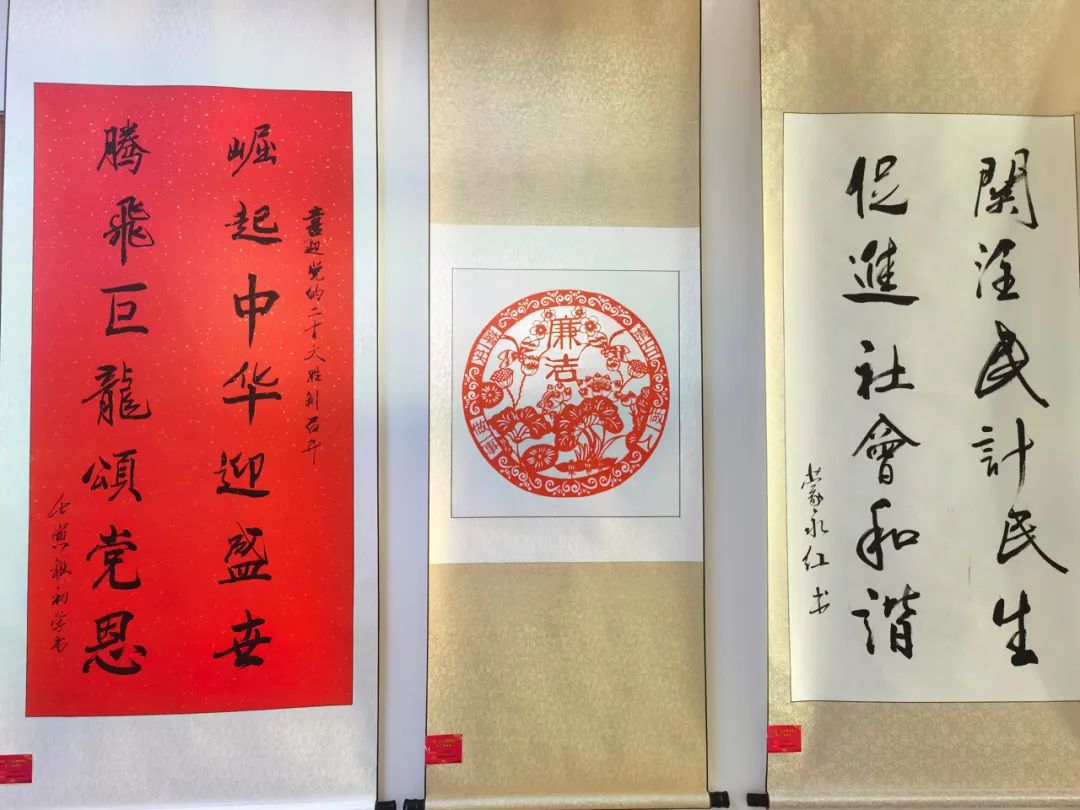 喜迎党的二十大胜利召开
崛起中华迎盛世
腾飛巨龍頌党恩
秋初学书
廉洁
關注民計民生
促進社會和諧
蒙永红书